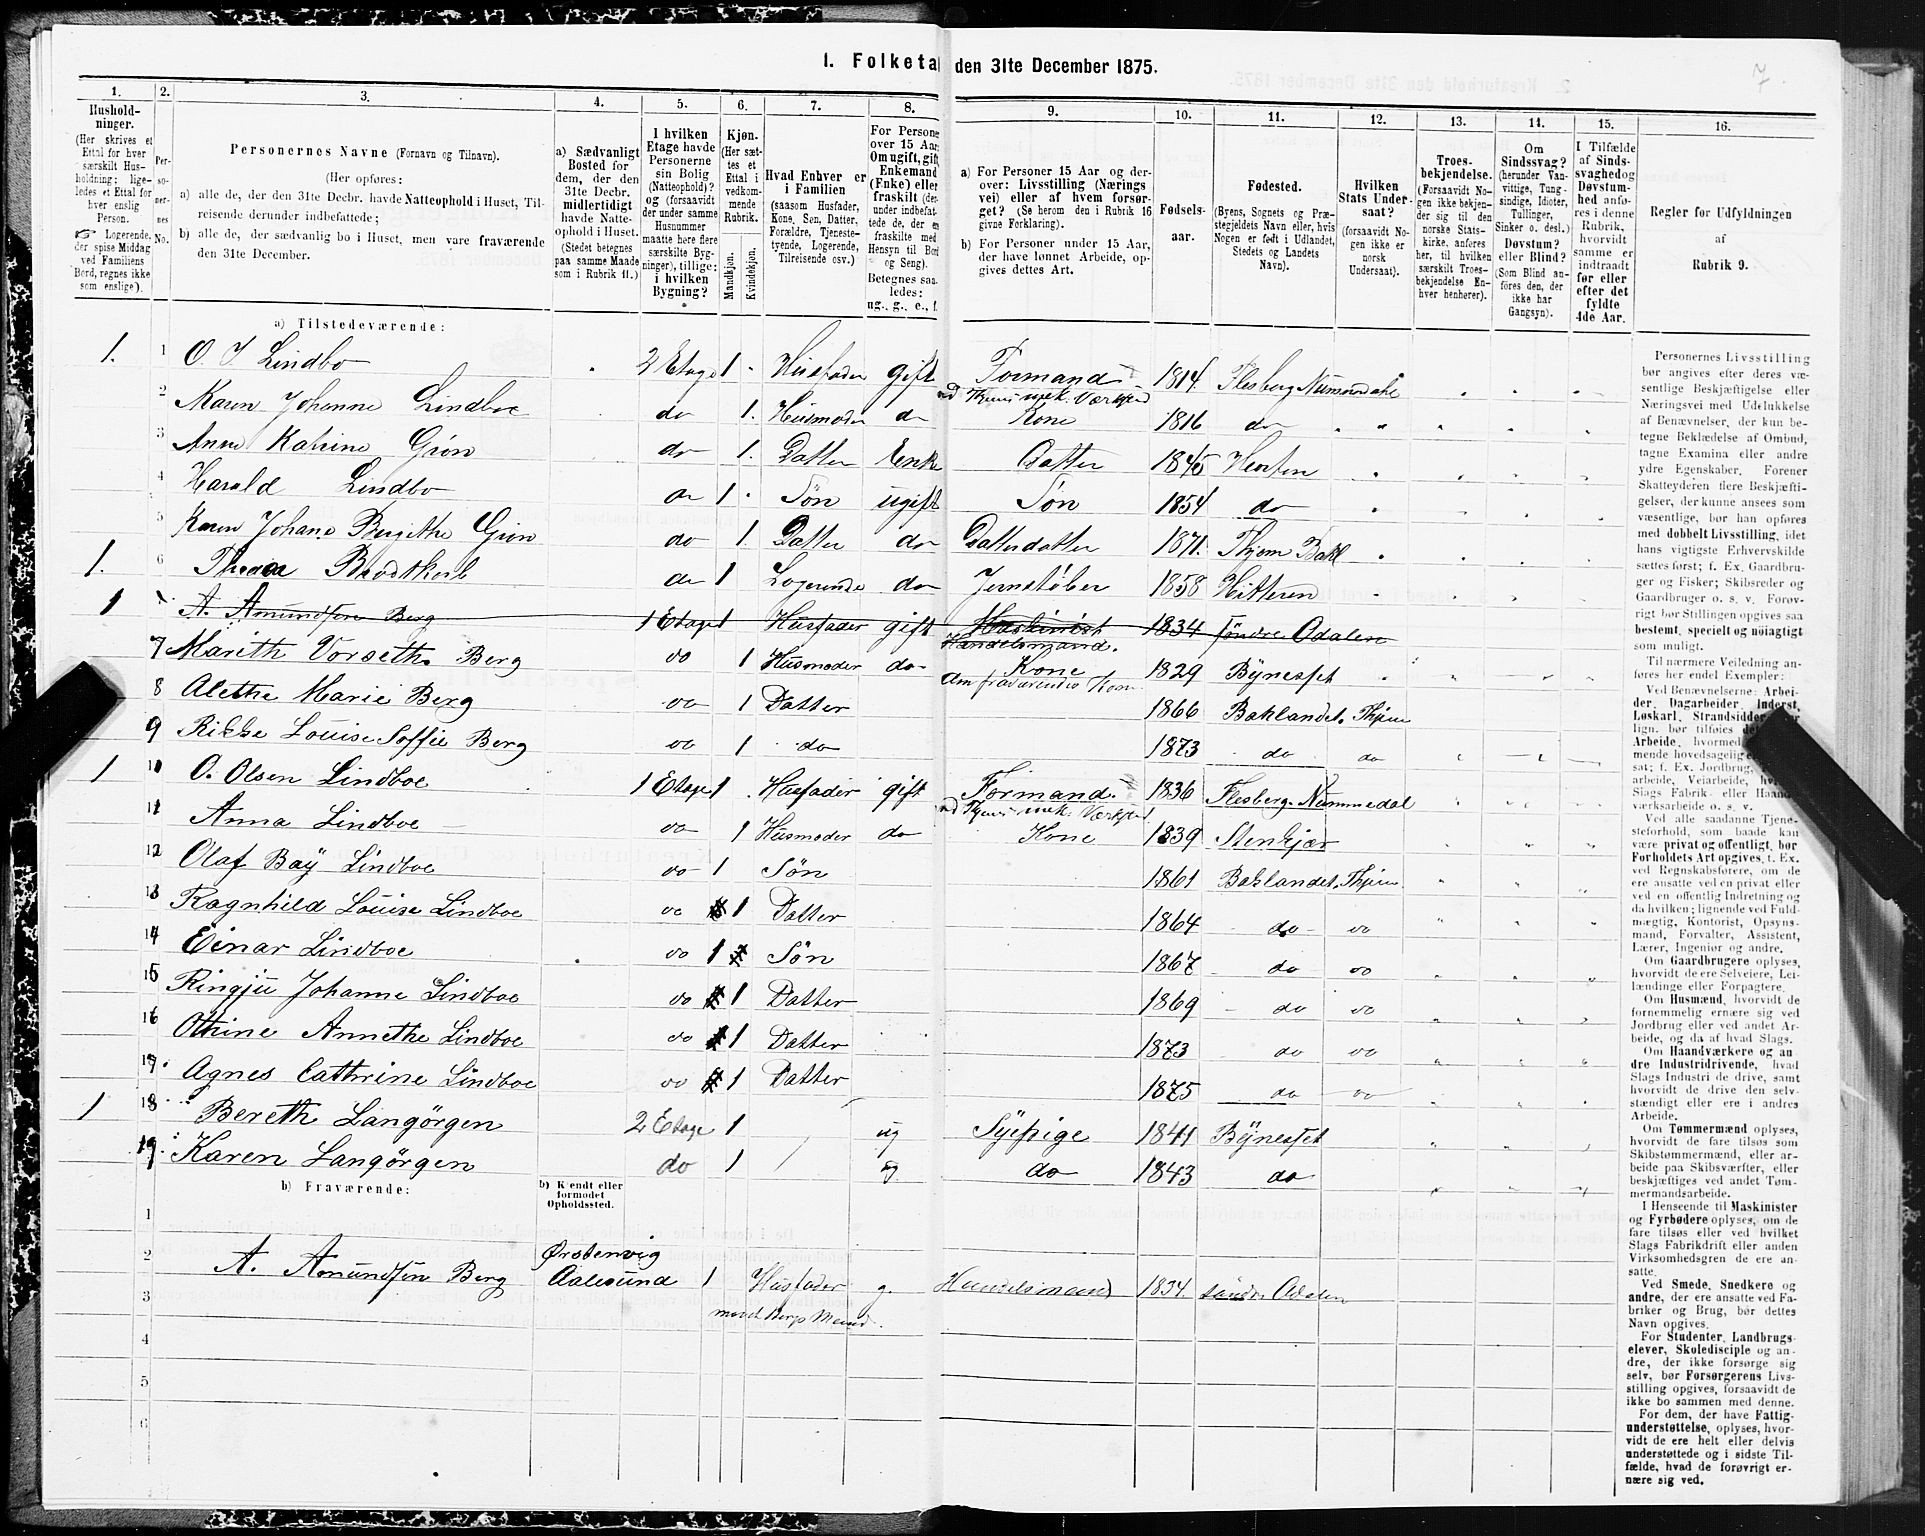 1. Folketa den 31te December 1875.
7.
1. 2. 3. 4. 5. 6. 7. 8. 9. 10. 11. 12. 13. 14. 15. 16.
Hushold-
ninger.
(Her skrives et
Ettal for hver
særskilt Hus-
holdning; lige-
ledes et Ettal for
hver enslig
Person.
Logerende,
der spise Middag
ved Familiens
Bord, regnes ikke
som enslige).
Per-
so-
ner-
nes
No.
Personernes Navne (Fornavn og Tilnavn).
(Her opføres:
a) alle de, der den 31te Decbr. havde Natteophold i Huset, Til-
reisende derunder indbefattede;
b) alle de, der sædvanlig bo i Huset, men vare fraværende
den 31te December.
a) Sædvanligt
Bosted for
dem, der den
31te Decbr.
midlertidigt
havde Natte-
ophold i Huset.
(Stedet betegnes
paa samme Maade
som i Rubrik 11.)
I hvilken
Etage havde
Personerne
sin Bolig
(Natteophold)?
og (forsaavidt
der under samme
Husnummer
maatte høre flere
særskilte Byg-
ninger), tillige:
i hvilken
Bygning?
Kjøn.
(Her sæt-
tes et
Ettal i
vedkom-
mende
Rubrik.
Mandkjøn.
Kvindekjøn.
Hvad Enhver er
i Familien
(saasom Husfader,
Kone, Søn, Datter,
Forældre, Tjeneste-
tyende, Logerende,
Tilreisende osv.)
For Persone
over 15 Aar
Om ugift, gift
Enkemand
(Enke) eller
fraskilt (der
under indbefat-
tede de, der e
fraskilte med
Hensyn til Bor
og Seng).
Betegnes saa
ledes:
ug., g., e., f.
a) For Personer 15 Aar og der-
over: Livsstilling (Nærings
vei) eller af hvem forsør-
get? (Se herom den i Rubrik 16
givne Forklaring).
b) For Personer under 15 Aar,
der have lønnet Arbeide, op-
gives dettes Art.
Fødsels-
aar.
Fødested.
(Byens, Sognets og Præ-
stegjeldets Navn eller, hvis
Nogen er født i Udlandet,
Stedets og Landets
Navn).
Hvilken
Stats Under-
saat?
(forsaavidt No-
gen ikke er
norsk
Undersaat).
Troes-
bekjendelse.
(Forsaavidt No-
gen ikke bekjen-
der sig til den
norske Stats-
kirke, anføres
her, til hvilken
særskilt Troes-
bekjendelse En-
hver henhører).
Om
Sindssvag?
(herunder Van-
vittige, Tung-
sindige, Idioter,
Tullinger,
Sinker o. desl.)
Døvstum?
eller Blind?
(Som Blind an-
føres den, der
ikke har
Gangsyn).
I Tilfælde
af Sinds-
svaghed og
Døvstum-
hed anfø-
res i denne
Rubrik,
hvorvidt
samme er
indtraadt
før eller
efter det
fyldte
4de Aar.
Regler for Udfyldningen
af
Rubrik 9.
a) Tilstedeværende:
1. 1 O. J. Lindbo 2 Etage 1 Husfader gift Formand 1814 Flesberg Nummedahl
ved Thjems mek. Værksted
2 Karen Johanne Lindboe do 1. Husmoder do Kone 1816 do
3 Anne Katrine Grøn do 1. Datter Enke Datter 1845 Horten
4 Harald Lindbo do 1 Søn ugift Søn 1854 do
5 Karen Johane Bergithe Grøn do 1. Datter do Datterdatter 1871. Thjem Bakl
1. 6 Brodtkorb do 1 Logerende do Jernstøber 1858 Hitteren
1 A. Amundsen Berg 1 Etage 1 Husfader gift Maskinist 1834 søndre Odalen
Handelsmand.
7 Marith Vorseth Berg do 1 Husmoder do Kone 1829 Bynesset
den fraværendes Kone
8 Alethe Marie Berg do 1 Datter 1866 Baklandet. Thjem
9 Rikke Louise Soffie Berg do 1 do 1873 do do
1 10 O. Olsen Lindboe 1 Etage 1 Husfader gift Formand 1836 Flesberg. Nummedal
ved Thjems mek. Værksted
11 Anna Lindboe do 1 Husmoder do Kone 1839 Stenkjær
12 Olaf Baÿ Lindboe do 1 Søn 1861 Baklandet. Thjem
13 Ragnhild Louise Lindboe do 1 Datter 1864 do do
14 Einar Lindboe do 1 Søn 1867 do do
15 Johanne Lindboe do 1 Datter 1869 do do
16 Othine Annethe Lindboe do 1 Datter 1873 do do
17. Agnes Cathrine Lindboe do 1 Datter 1875 do do
1 18 Bereth Langörgen 2 Etage 1 ug Sypige 1841 Bÿnesset
19. Karen Langörgen do 1 ug. do 1843 do
b) Fraværende:
b) Kjendt eller
formodet
Opholdssted.
1
2 Ørstenvig
A. Amundsen Berg Aalesund 1 Husfader g. Handelsmand 1834. søndre Odalen
3
4
5
6
Personernes Livsstilling
bør angives efter deres væ-
sentlige Beskjæftigelse eller
Næringsvei med Udelukkelse
af Benævnelser, der kun be-
tegne Beklædelse af Ombud,
tagne Examina eller andre
ydre Egenskaber. Forener
Skatteyderen flere Beskjæfti-
gelser, der kunne ansees som
væsentlige, bør han opføres
med dobbelt Livsstilling, idet
hans vigtigste Erhvervskilde
sættes først; f. Ex. Gaardbru-
ger og Fisker; Skibsreder og
Gaardbruger o. s. v. Forøv-
rigt bør Stillingen opgives saa
bestemt, specielt og nøiagtigt
som muligt.
Til nærmere Veiledning an-
føres her endel Exempler:
Ved Benævnelserne: Arbei-
der, Dagarbeider, Inderst,
Løskarl, Strandsidder
lign. bør tilføies
Arbeide, hvormed
mende hovedsagelig
sat; f. Ex. Jordbrug,
arbeide, Veiarbeide,
Slags Fabrik- eller Haand
værksarbeide o. s. v.
Ved alle saadanne Tjene-
steforhold, som baade kan
være privat og offentligt, bør
Forholdets Art opgives, t. Ex.
ved Regnskabsførere, om de
ere ansatte ved en privat eller
ved en offentlig Indretning og
da hvilken; lignende ved Fuld-
mægtig, Kontorist, Opsyns-
mand, Forvalter, Assistent,
Lærer, Ingeniør og andre.
Om Gaardbrugere oplyses,
hvorvidt de ere Selveiere, Lei-
lændinge eller Forpagtere.
Om Husmænd, hvorvidt de
fornemmelig ernære sig ved
Jordbrug eller ved andet Ar-
beide, og da af hvad Slags.
Om Haandværkere og an
dre Industridrivende, hvad
Slags Industri de drive, samt
hvorvidt de drive den selv-
stændigt eller ere i andres
Arbeide.
Om Tømmermænd oplyses,
hvorvidt de fare tilsøs som
Skibstømmermænd, eller ar-
beide paa Skibsværfter, eller
beskjæftiges ved andet Tøm-
mermandsarbeide.
I Henseende til Maskinister
og Fyrbødere oplyses, om de
fare tilsøs eller ved hvilket
Slags Fabrikdrift eller anden
Virksomhedsgren de ere an-
satte.
Ved Smede, Snedkere og
andre, der ere ansatte ved Fa-
briker og Brug, bør dettes
Navn opgives.
For Studenter, Landbrugs-
elever, Skoledisciple og an-
dre, der ikke forsørge sig
selv, bør Forsørgerens Livs-
stilling opgives, forsaavidt de
ikke bo sammen med denne.
For dem, der have Fattig-
understøttelse, oplyses, hvor-
vidt de ere helt eller delvis
understøttede og i sidste Til-
fælde, hvad de forøvrigt er-
nære sig ved.